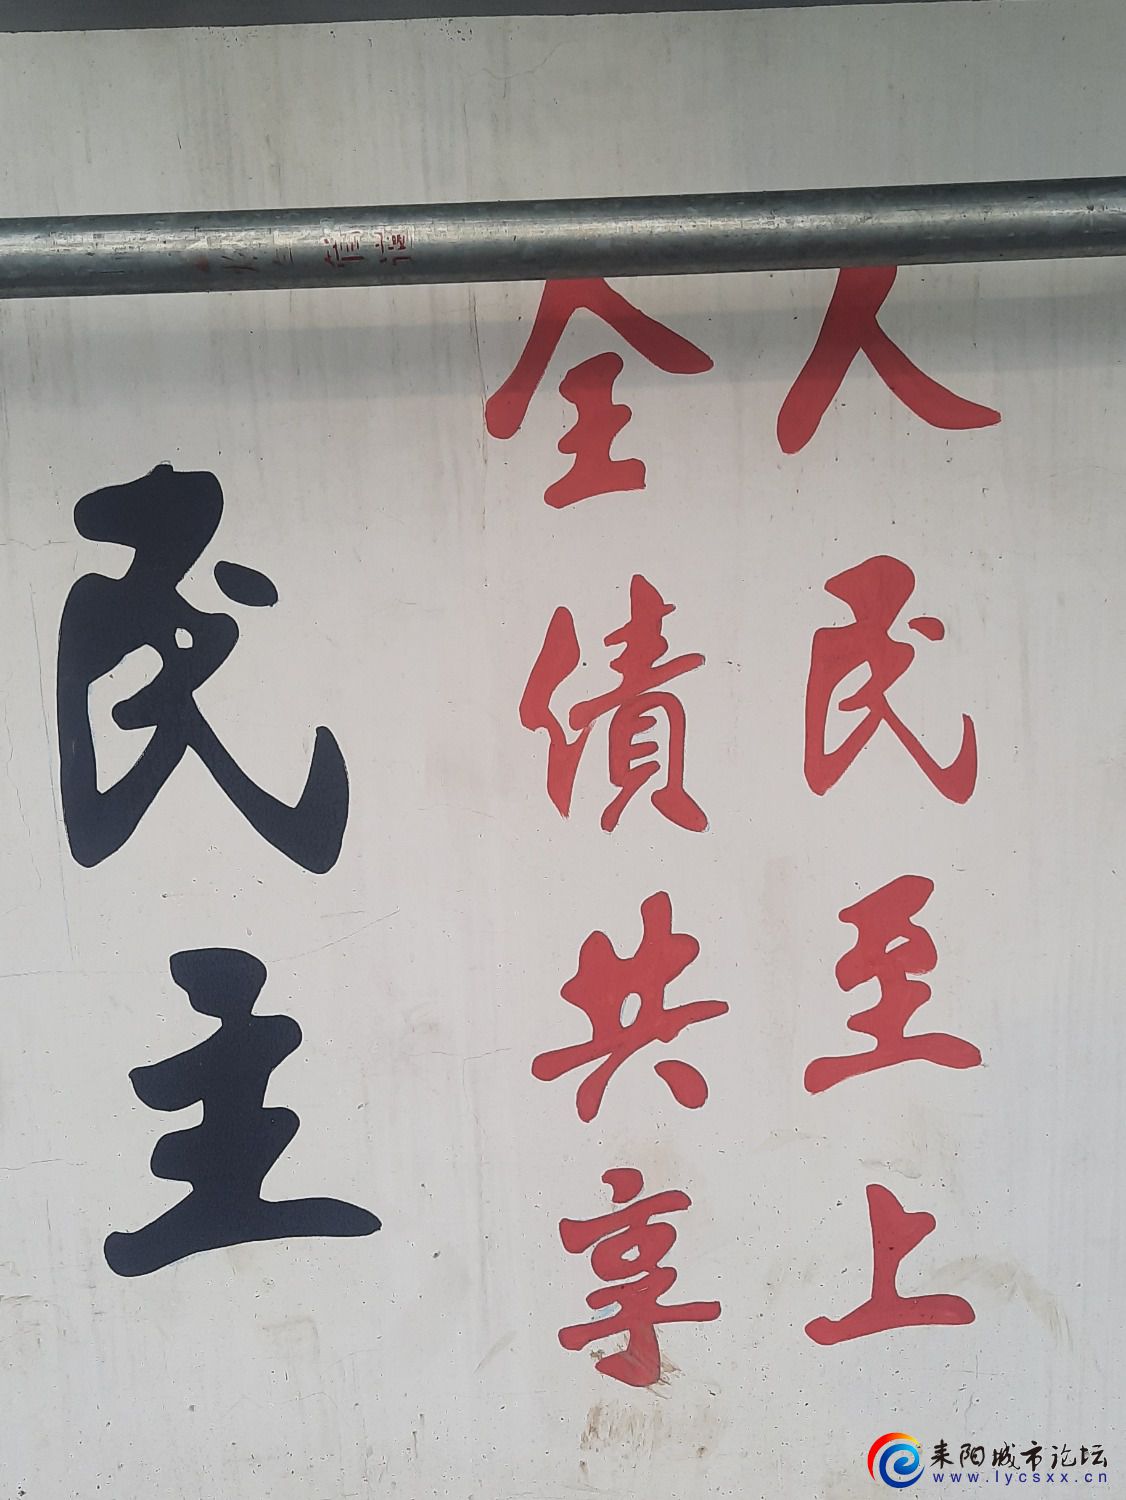 人民至上
全債共享
民主
耒阳城市论坛
www.lycsxx.cn